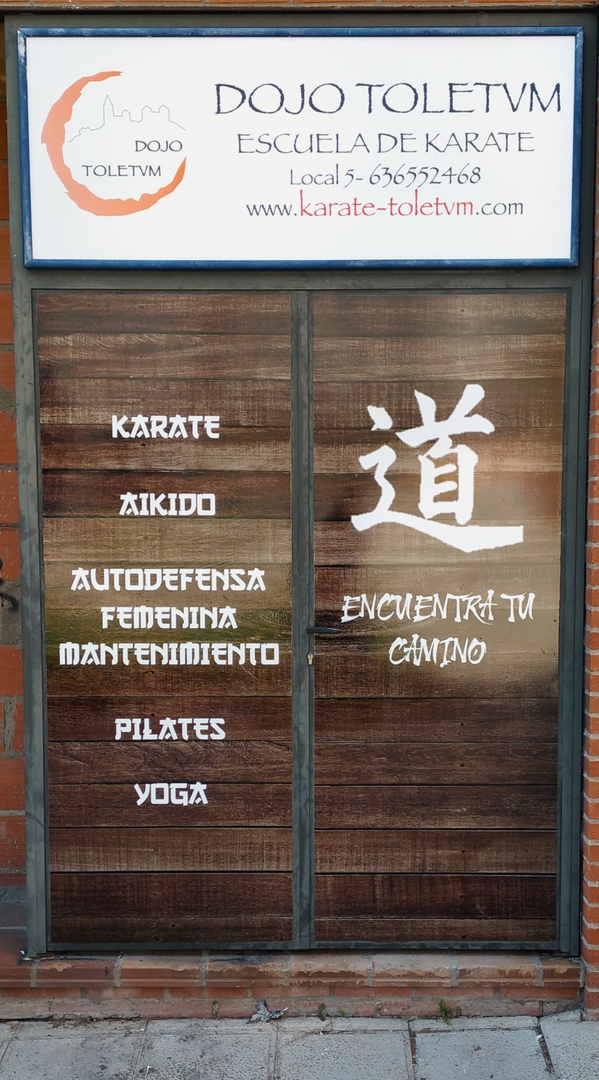 DOJO
TOLETVM
DOJO TOLETVM
ESCUELA DE KARATE
Local 5- 636552468
www.karate-toletvm.com
KARATE
AIKIDO
AUTODEFENSA
FEMENINA
MANTENIMIENTO
PILATES
YOGA
道
ENCUENTRA TU
CAMINO